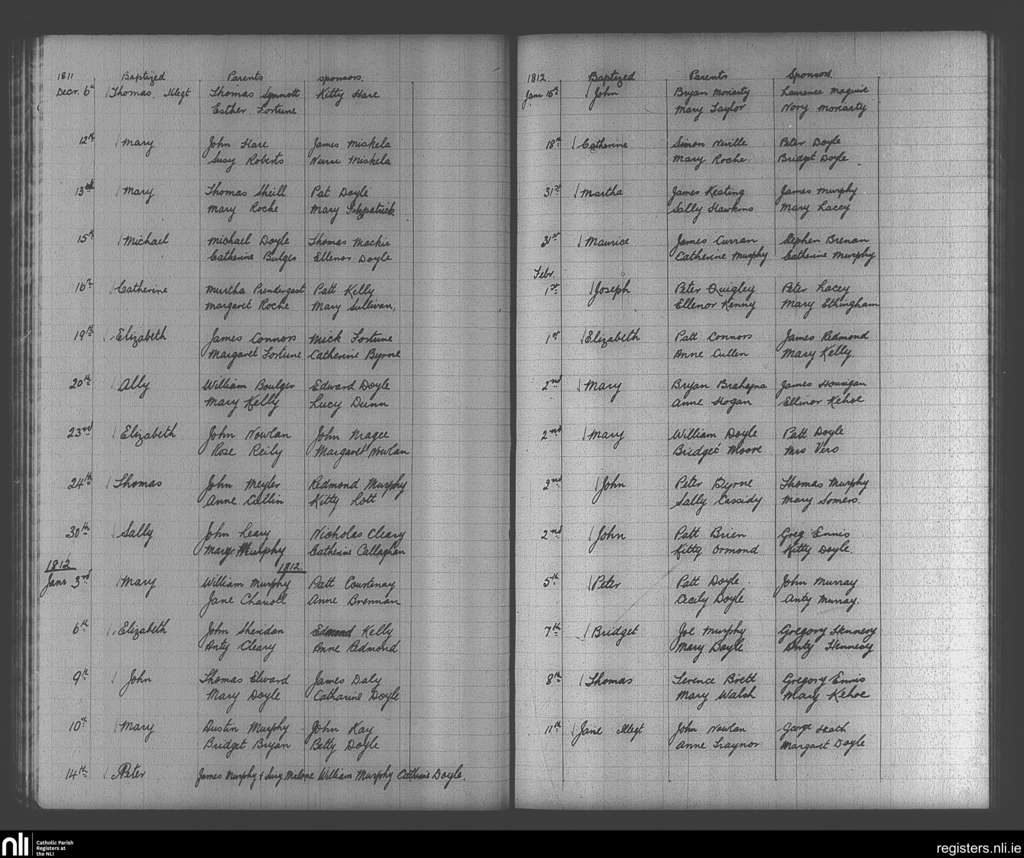 1811 Baptized Parents Sponsors.
Decr. 6th Thomas Illegt Thomas Synnott Kitty Hare
Esther Fortune
12th Mary John Hare James Miskela
Susy Roberts Nurse Miskela
13th Mary Thomas Sheill Pat Doyle
Mary Roche Mary Fitzpatrick
15th Michael Michael Doyle Thomas Mackir
Catherine Bulger Ellenor Doyle
16th Catherine Murtha Prendergast Patt Kelly
Margaret Roche Mary Sullivan,
19th Elizabeth James Connors Mick Fortune
Margaret Fortune Catherine Byrne
20th Ally William Boulger Edward Doyle
Mary Kelly Lucy Dunn
23rd Elizabeth John Nowlan John Magee
Rose Reily Margaret Nowlan
24th Thomas John Meyler Redmond Murphy
Anne Cullin Kitty Rott
30th Sally John Leary Nicholas Cleary
Margt Murphy Catherine Callaghan
1812 1812
Janr 3rd Mary William Murphy Patt Courtenay
Jane Anne Brennan
6th Elizabeth John Sheridan Edmond Kelly
Anty Cleary Anne Redmond
9th John Thomas Edward James Daly
Mary Doyle Catharine Doyle
10th Mary Austin Murphy John Kay
Bridget Bryan Betty Doyle
14th Peter James Murphy & Judy Malone William Murphy Catherine Doyle.
1812. Baptized Parents Sponsors
Janr 16th John Bryan Moriarty Laurence Maguire
Mary Taylor Nory Moriarty
18th Catherine Simon Neville Peter Doyle
Mary Roche Bridget Doyle
31st Martha James Keating James Murphy
Sally Hawkins Mary Lacey
31st Maurice James Curran Stephen Brenan
Catherine Murphy Catherine Murphy
Febr.
1st Joseph Peter Quigley Peter Lacey
Ellenor Kenny Mary Ethingham
1st Elizabeth Patt Connors James Redmond
Anne Cullen Mary Kelly.
2nd Mary Bryan James Hounigan
Anne Hogan Ellinor Kehoe
2nd Mary William Doyle Patt Doyle
Bridget Moore Mrs Vero
2nd John Peter Byrne Thomas Murphy
Sally Cassidy Mary Somers.
2nd John Patt Brien Greg Ennis
Kitty Ormond Kitty Doyle.
5th Peter Patt Doyle John Murray
Cecily Doyle Anty Murray.
7th Bridget Joe Murphy Gregory Hennesy
Mary Doyle Anty Hennesy
8th Thomas Terence Brett Gregory Ennis
Mary Walsh Mary Kehoe
11th Jane Illegt John Nowlan George Heath
Anne Traynor Margaret Doyle
nli Catholic Parish
Registers at
the NLI
registers.nli.ie